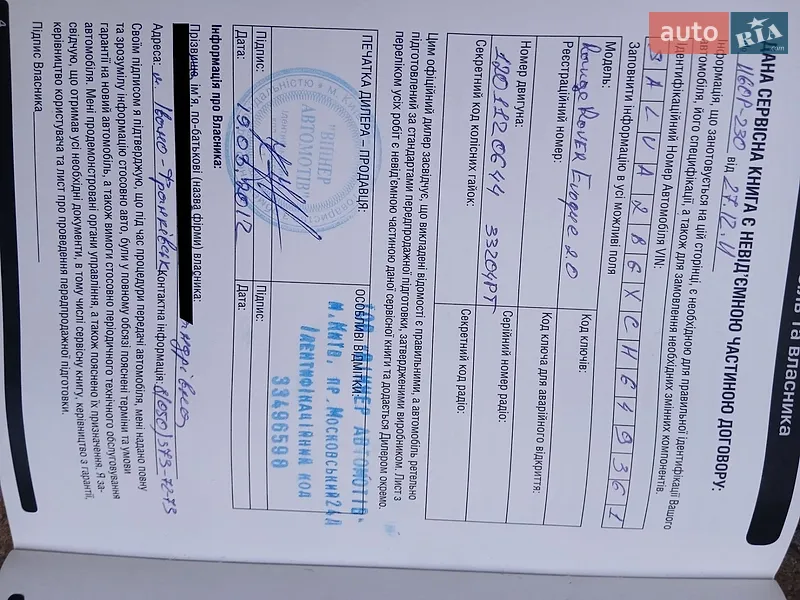 auto RIA
та власника
ДАНА СЕРВІСНА КНИГА Є НЕВІД'ЄМНОЮ ЧАСТИНОЮ ДОГОВОРУ:
116СР-230 від 27.12.11
Інформація, що занотовується на цій сторінці, є необхідною для правильної ідентифікації Вашого
автомобіля, його специфікації, а також для замовлення необхідних змінних компонентів.
Ідентифікаційний Номер Автомобіля VIN:
Заповнити інформацію в усі можливі поля
Модель:
Range Rover Evoque 2.0
Реєстраційний номер:
Код ключів:
Код ключа для аварійного відкриття:
Номер двигуна:
Серійний номер радіо:
Секретний код колісних гайок:
33204PT
Секретний код радіо:
Цим офіційний дилер засвідчує, що викладені відомості є правильними, а автомобіль ретельно
підготовлений за стандартами передпродажної підготовки, затвердженими виробником. Лист з
переліком усіх робіт є невід'ємною частиною даної сервісної книги та додається Дилером окремо.
ПЕЧАТКА ДИЛЕРА – ПРОДАВЦЯ:
ОСОБЛИВІ ВІДМІТКИ:
"ВІННЕР АВТОМОТІВ"
ТОВ «ВІННЕР АВТОМОТІВ»
м. Київ, пр. Московський 24Д
Ідентифікаційний код
33496598
Підпис:
Підпис:
Дата:
19.03.2012
Дата:
Інформація про Власника:
Прізвище, ім'я, по-батькові (назва фірми) власника:
Адреса: м. Івано-Франківськ Контактна інформація: 8(050)373-72-73
Своїм підписом я підтверджую, що під час процедури передачі автомобіля, мені надано повну
та зрозумілу інформацію стосовно авто, були у повному обсязі пояснені терміни та умови
гарантії на новий автомобіль, а також вимоги стосовно періодичного технічного обслуговування
автомобіля. Мені продемонстровані органи управління, а також пояснено їх призначення. Я за-
свідчую, що отримав усі необхідні документи, в тому числі сервісну книгу, керівництво з гарантії,
керівництво користувача та лист про проведення передпродажної підготовки.
Підпис Власника
4